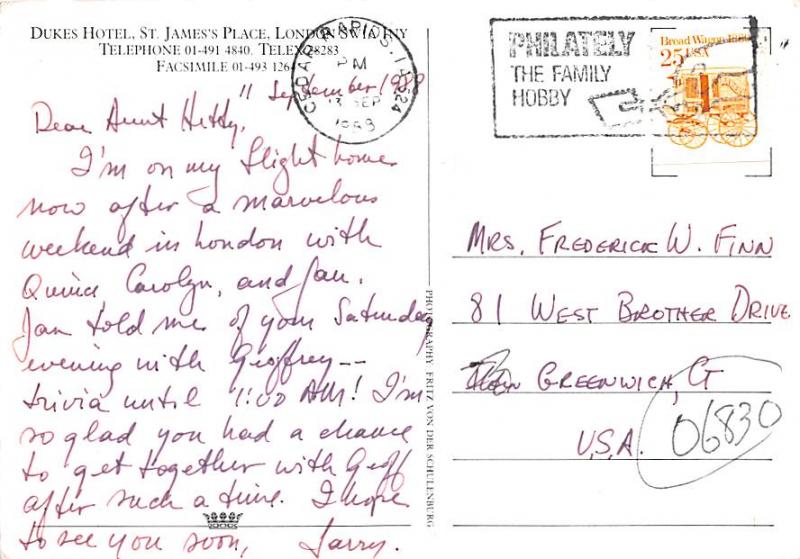 DUKES HOTEL, ST. JAMES'S PLACE, LONDON SW1A 1NY
TELEPHONE 01-491 4840. TELEX 28283
FACSIMILE 01-493 1264
CEDAR RAPIDS, IA 524
PM
13 SEP
1988
PHILATELY
THE FAMILY
HOBBY
Bread Wagon 1880s
25 USA
11 September 1988
Dear Aunt Hetty,
I'm on my flight home
now after a marvelous
weekend in London with
Carolyn, and Jan.
Jan told me of your Saturday
evening with Geoffrey --
trivia until 1:00 AM! I'm
so glad you had a chance
to get together with Geoff
after such a time. I hope
to see you soon, Larry.
PHOTOGRAPHY FRITZ VON DER SCHULENBURG
MRS. FREDERICK W. FINN
81 WEST BROTHER DRIVE
GREENWICH, CT
U.S.A. 06830